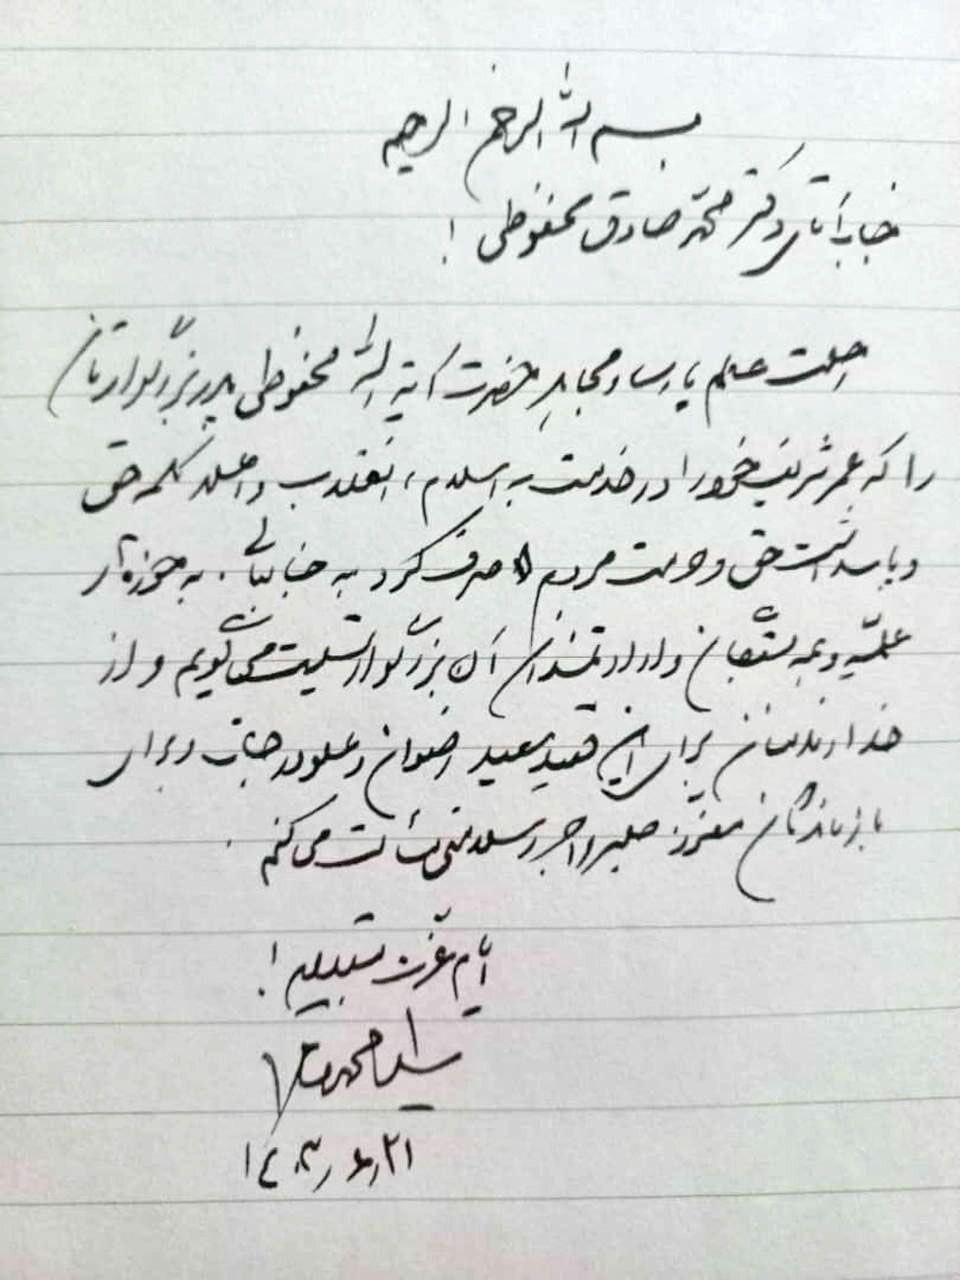 بسم الله الرحمن الرحیم
جناب آقای دکتر محمد صادق محفوظی !
رحلت عالم پارسا و مجاهد حضرت آیة الله محفوظی پدر بزرگوارتان
را که عمر شریف خود را در خدمت به اسلام، انقلاب و اعلاء کلمه حق
و پاسداشت حق و حرمت مردم صرف کرد به جنابعالی، به حوزه‌های
علمیّه و همه بستگان و ارادتمندان آن بزرگوار تسلیت می‌گویم و از
خداوند منان برای این فقید سعید رضوان و علو درجات و برای
بازماندگان معزز صبر و اجر و سلامتی مسألت می‌کنم.
ایام عزت مستدام !
سید محمد خاتمی
۱۴۰۳/۶/۲۱